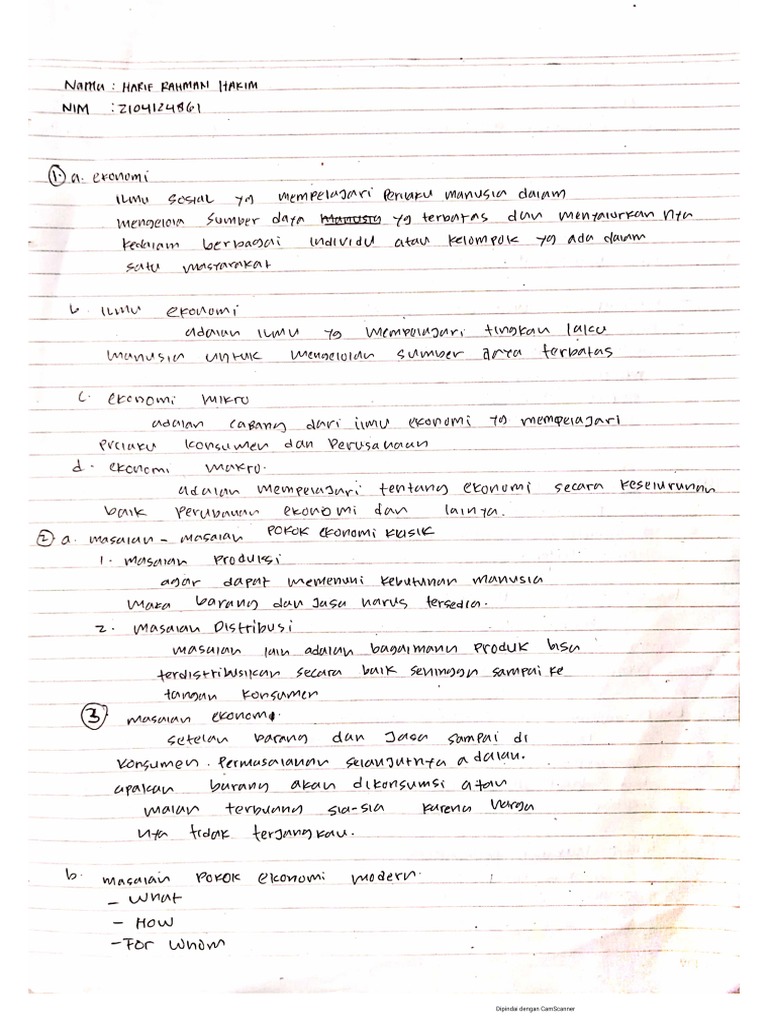 Nama : HARIF RAHMAN HAKIM
NIM : 2104124861
1. a. ekonomi
ilmu sosial yg mempelajari perilaku manusia dalam
mengelola sumber daya manusia yg terbatas dan menyalurkan nya
kedalam berbagai individu atau kelompok yg ada dalam
satu masyarakat
b. ilmu ekonomi
adalah ilmu yg mempelajari tingkah laku
manusia untuk mengelolah sumber terbatas
c. ekonomi mikro
adalah cabang dari ilmu ekonomi yg mempelajari
prilaku konsumen dan Perusahaan
d. ekonomi makro.
adalah mempelajari tentang ekonomi secara keseluruhan
baik perubahan ekonomi dan lainya.
2 a. masalah - masalah POKOK EKONOMI KLASIK
1. masalah Produksi
agar dapat memenuhi kebutuhan manusia
maka barang dan jasa harus tersedia.
2. masalah Distribusi
masalah lain adalah bagaimana produk bisa
terdistribusikan secara baik sehingga sampai ke
tangan konsumen
3 masalah ekonomi.
setelah barang dan jasa sampai di
konsumen. Permasalahan selanjutnya adalah.
apakah barang akan dikonsumsi atau
malah terbuang sia-sia karena harga
nya tidak terjangkau.
b. masalah POKOK ekonomi modern.
- What
- How
- For Whom
Dipindai dengan CamScanner